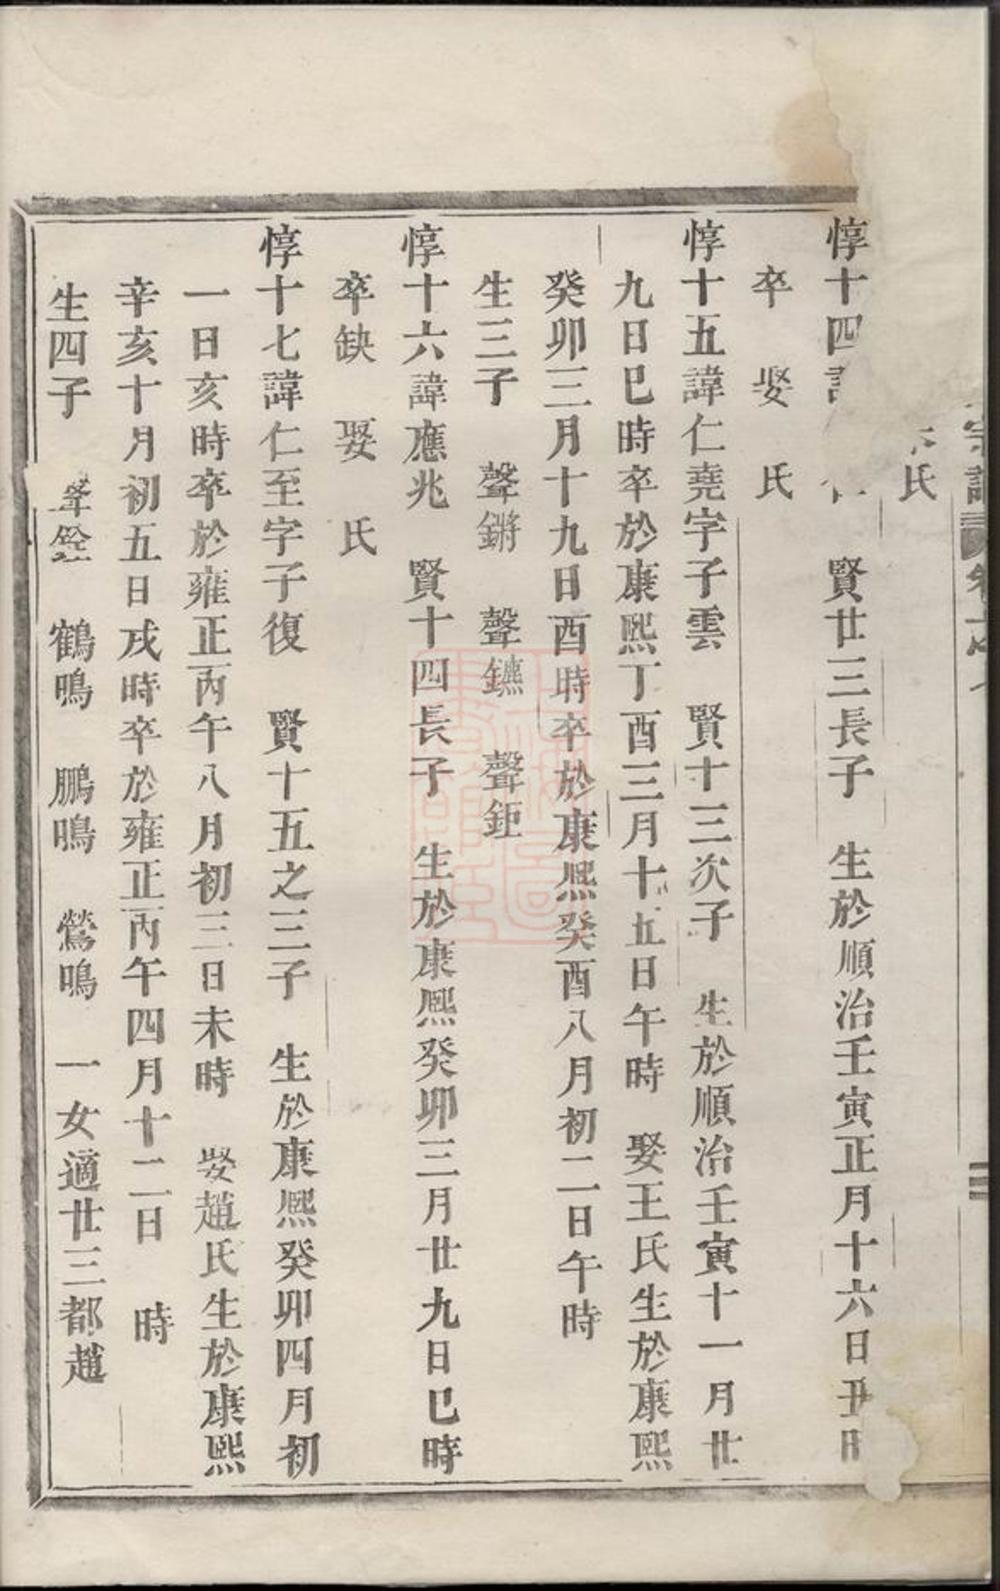 宗譜
氏
惇十四 賢廿三長子 生於順治壬寅正月十六日丑時
卒 娶 氏
惇十五諱仁堯字子雲 賢十三次子 生於順治壬寅十一月廿
九日巳時卒於康熙丁酉三月十五日午時 娶王氏生於康熙
癸卯三月十九日酉時卒於康熙癸酉八月初二日午時
生三子 聲鏘 聲鑣 聲鉅
惇十六諱應兆 賢十四長子 生於康熙癸卯三月廿九日巳時
卒缺 娶 氏
惇十七諱仁至字子復 賢十五之三子 生於康熙癸卯四月初
一日亥時卒於雍正丙午八月初三日未時 娶趙氏生於康熙
辛亥十月初五日戌時卒於雍正丙午四月十二日 時
生四子 聲銓 鶴鳴 鵬鳴 鶯鳴 一女適廿三都趙